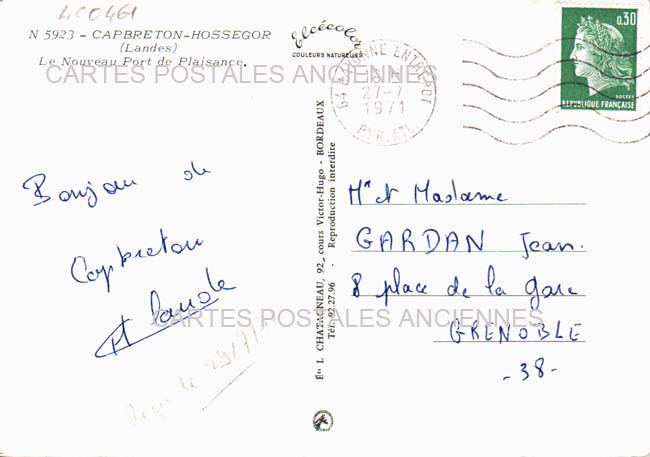 400461
N 5923 - CAPBRETON-HOSSEGOR
(Landes)
Le Nouveau Port de Plaisance.
Elcécolor
COULEURS NATURELLES
64 BAYONNE ENTREPOT
27-7
1971
PYR. ATL.
0,30
POSTES
REPUBLIQUE FRANÇAISE
CARTES POSTALES ANCIENNES
Bonjour de
Capbreton
Claude
Reçu le 29/7/71
Éts L. CHATAGNEAU, 92, cours Victor-Hugo - BORDEAUX
Tél. 92.27.96 - Reproduction interdite
Mr et Madame
GARDAN Jean.
8 place de la gare
GRENOBLE
-38-
CARTES POSTALES ANCIENNES